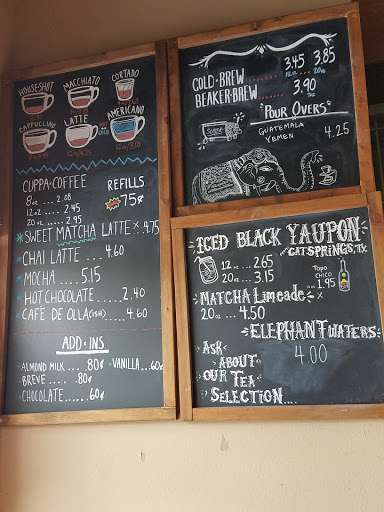 HOUSE·SHOT
MACCHIATO
CORTADO
CAPPUCCINO
LATTE
AMERICANO
CUPPA·COFFEE
REFILLS
8oz ... 2.08
75¢
12oz .... 2.45
20oz .... 2.95
SWEET MATCHA LATTE × 4.75
CHAI LATTE .... 4.60
MOCHA .... 5.15
HOT CHOCOLATE ..... 2.40
CAFÉ DE OLLA(ISH) ..... 4.60
ADD·INS
·ALMOND MILK .... .80¢
·VANILLA...60¢
BREVE .... .80¢
·CHOCOLATE.....60¢
3.45 3.85
COLD·BREW
12oz. 20oz.
BEAKER·BREW
3.90
POUR OVERS
GUATEMALA
YEMEN
4.25
ICED BLACK YAUPON
CATSPRINGS, TX
12oz ... 2.65
20oz ... 3.15
TOPO CHICO
1.95
MATCHA LIMEADE ×
20oz ... 4.50
ELEPHANT WATERS
4.00
ASK
ABOUT
OUR TEA
SELECTION....